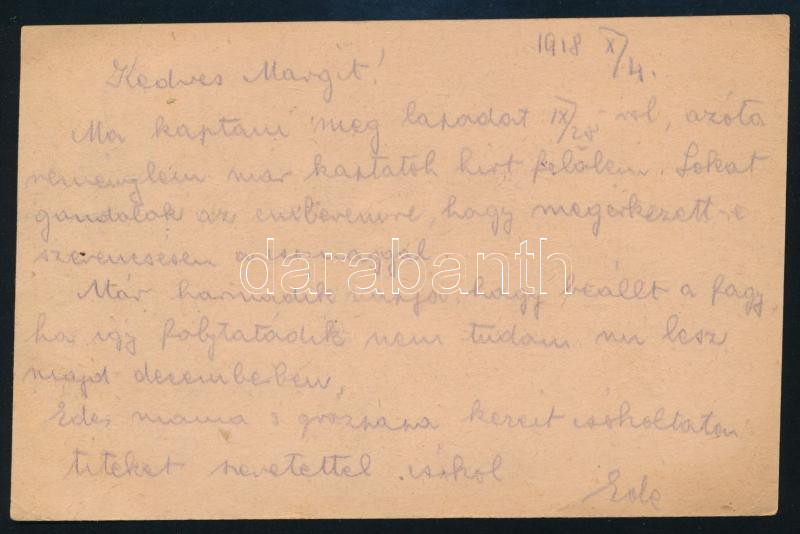 1918 X/4.
Kedves Margit!
Ma kaptam meg lapadat IX/28-ról, azóta
reménylem már kaptatok hirt felőlem. Sokat
gondolok az emberemre, hogy megérkezett-e
szerencsésen
darabanth
Már harmadik napja, hogy beállt a fagy,
ha így folytatódik nem tudom mi lesz
majd decemberben.
Édes mama s grószpapa kezeit csókoltatom
titeket szeretettel csókol
Ede